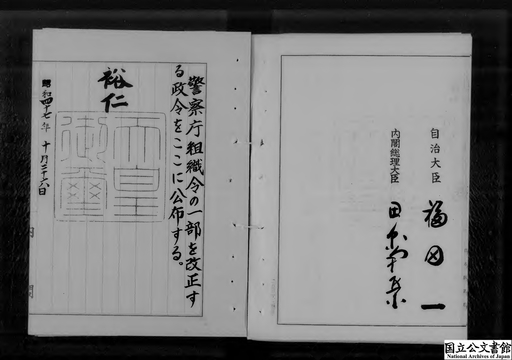 警察庁組織令の一部を改正す
る政令をここに公布する。
裕仁
天皇
御璽
昭和四十七年 十月二十六日
自治大臣 福田 一
内閣総理大臣 田中角栄
国立公文書館
National Archives of Japan